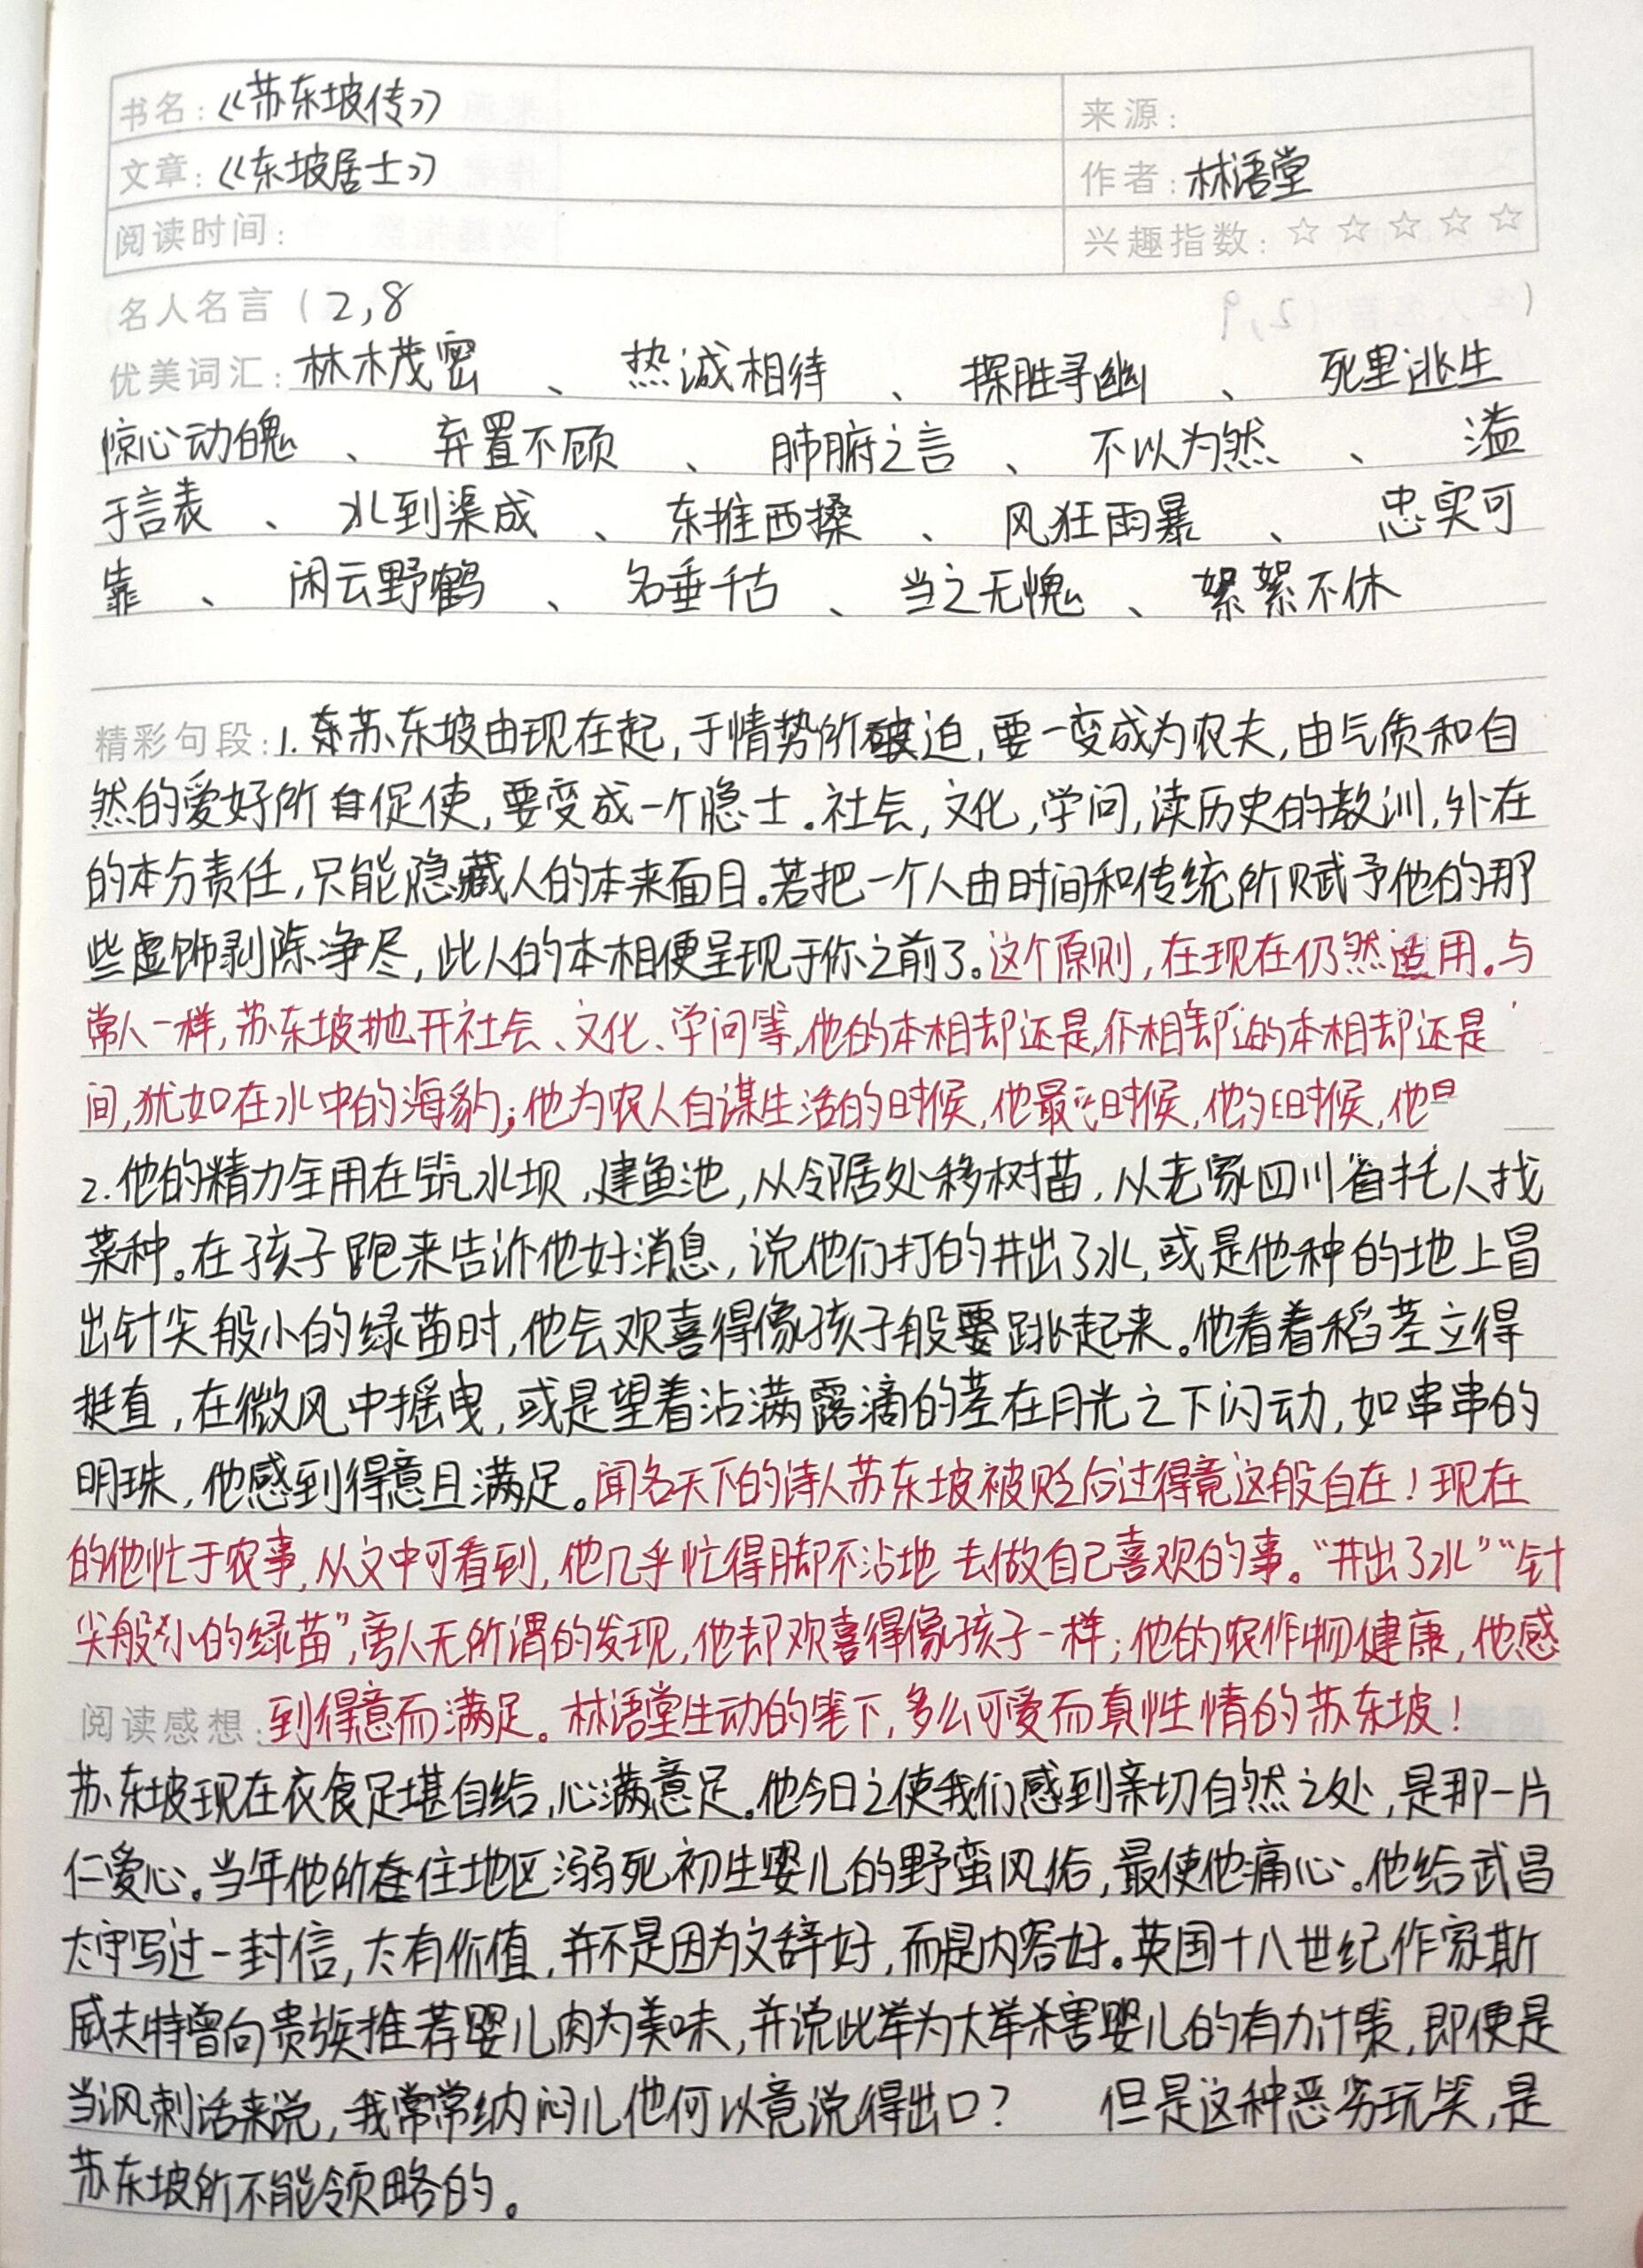 书名：《苏东坡传》 来源：
文章：《东坡居士》 作者：林语堂
阅读时间： 兴趣指数：☆☆☆☆☆
名人名言（2,8 ）
优美词汇：林木茂密、热诚相待、探胜寻幽、死里逃生
惊心动魄、弃置不顾、肺腑之言、不以为然、溢
于言表、水到渠成、东推西搡、风狂雨暴、忠实可
靠、闲云野鹤、名垂千古、当之无愧、絮絮不休
精彩句段：1.苏东坡由现在起，于情势所迫，要一变成为农夫，由气质和自
然的爱好所促使，要变成一个隐士。社会，文化，学问，读历史的教训，外在
的本分责任，只能隐藏人的本来面目。若把一个人由时间和传统所赋予他的那
些虚饰剥除净尽，此人的本相便呈现于你之前了。这个原则，在现在仍然适用。与
常人一样，苏东坡抛开社会、文化、学问等，他的本相却还是，相却的本相却还是
间，犹如在水中的海豹；他为农人自谋生活的时候，他最时候，他的时候，他
2.他的精力全用在筑水坝，建鱼池，从邻居处移树苗，从老家四川省托人找
菜种。在孩子跑来告诉他好消息，说他们打的井出了水，或是他种的地上冒
出针尖般小的绿苗时，他会欢喜得像孩子般要跳起来。他看着稻茎立得
挺直，在微风中摇曳，或是望着沾满露滴的茎在月光之下闪动，如串串的
明珠，他感到得意且满足。闻名天下的诗人苏东坡被贬后过得竟这般自在！现在
的他忙于农事，从文中可看到，他几乎忙得脚不沾地去做自己喜欢的事。“井出了水”“针
尖般小的绿苗”，旁人无所谓的发现，他却欢喜得像孩子一样；他的农作物健康，他感
阅读感想：到得意而满足。林语堂生动的笔下，多么可爱而真性情的苏东坡！
苏东坡现在衣食足堪自给，心满意足。他今日之使我们感到亲切自然之处，是那一片
仁爱心。当年他所在住地区溺死初生婴儿的野蛮风俗，最使他痛心。他给武昌
太守写过一封信，太有价值，并不是因为文辞好，而是内容好。英国十八世纪作家斯
威夫特曾向贵族推荐婴儿肉为美味，并说此举为大举杀害婴儿的有力计策，即便是
当讽刺话来说，我常常纳闷儿他何以竟说得出口？ 但是这种恶劣玩笑，是
苏东坡所不能领略的。